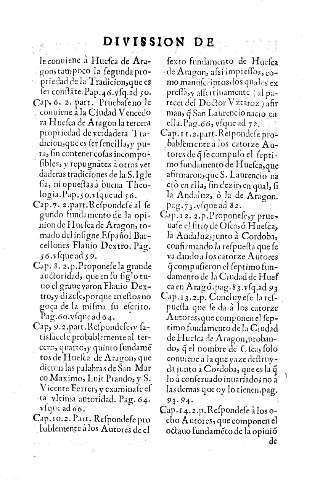 DIVISSION DE
le conuiene à Huesca de Ara-
gon: tampoco la segunda pro-
priedad de la Tradicion, que es
ser constãte. Pag. 46. vsq; ad 50.
Cap. 6. 2. part. Prueuase no le
conuiene à la Ciudad Vencedo
ra Huesca de Aragon la tercera
propriedad de verdadera Tra-
dicion, que es ser sencilla, y pu-
ra, sin contener cosas incompo-
sibles, y repugnãtes à otras ver
daderas tradiciones de la S. Igle
sia, ni opuestas à buena Theo-
logia. Pag. 50. vsque ad 56.
Cap. 7. 2. part. Respõdese al se
gundo fundamento de la opi-
nion de Huesca de Aragon, to-
mado del insigne Español Bar-
cellones Flauio Dextro. Pag.
56. vsque ad 59.
Cap. 8. 2. p. Proponese la grande
auctoridad, que en su sig'o tu-
uo el graue varon Flauio Dex-
tro, y dizese, porque en estos no
goça de la misma su escrito.
Pag. 60. vsque ad 64.
Cap. 9. 2. part. Respõdese, y sa-
tisfacese probablemente al ter-
cero, quarto, y quinto fundamẽ
tos de Huesca de Aragon, que
dictan las palabras de San Mar
co Maximo, Luit Prando, y S.
Vicente Ferrer, y examinase es
ta vltima autoridad. Pag. 64.
vsque ad 66.
Cap. 10. 2. Part. Respõdese pro
bablemente à los Autores de el
sexto fundamento de Huesca
de Aragon, assi impressos, co-
mo manuscriptos, los quales ex
presso, y assertiuamente (al pa-
recer del Doctor Vztaroz) afir
man, q̃ San Laurencio nacio en
ella. Pag. 66. vsque ad 72.
Cap. 11. 2. part. Respõdese pro-
bablemente à los catorze Au-
tores de q̃ se compuso el septi-
mo fundamento de Huesca, que
afirmaron, que S. Laurencio na
ciò en ella, sin dezir en qual, si
la Andaluz, ò la de Aragon.
pag. 73. vsque ad 82.
Cap. 12. 2. p. Proponese, y prue-
uase el sitio de Osca, ò Huesca,
la Andaluz, junto à Cordoba,
confirmando la respuesta que se
và dando à los catorze Autores
q̃ compusieron el septimo fun-
damento de la Ciudad de Hues
ca en Aragõ. pag. 83. vsq. ad 93
Cap. 13. 2. p. Concluyese la res-
puesta que se da à los catorze
Autores, que componen el sep-
timo fundamento de la Ciudad
de Huesca de Aragon, proban-
dos, q̃ el nombre de Osca, solo
conuiene à la que yaze destruy-
da junto à Cordoba, que es la q̃
lo à conseruado inuariado; no à
las demas que oy lo tienen. pag.
93. 94.
Cap. 14. 2. p. Respõdese à los o-
cho Autores, que componen el
octauo fundamẽto de la opiniõ
de